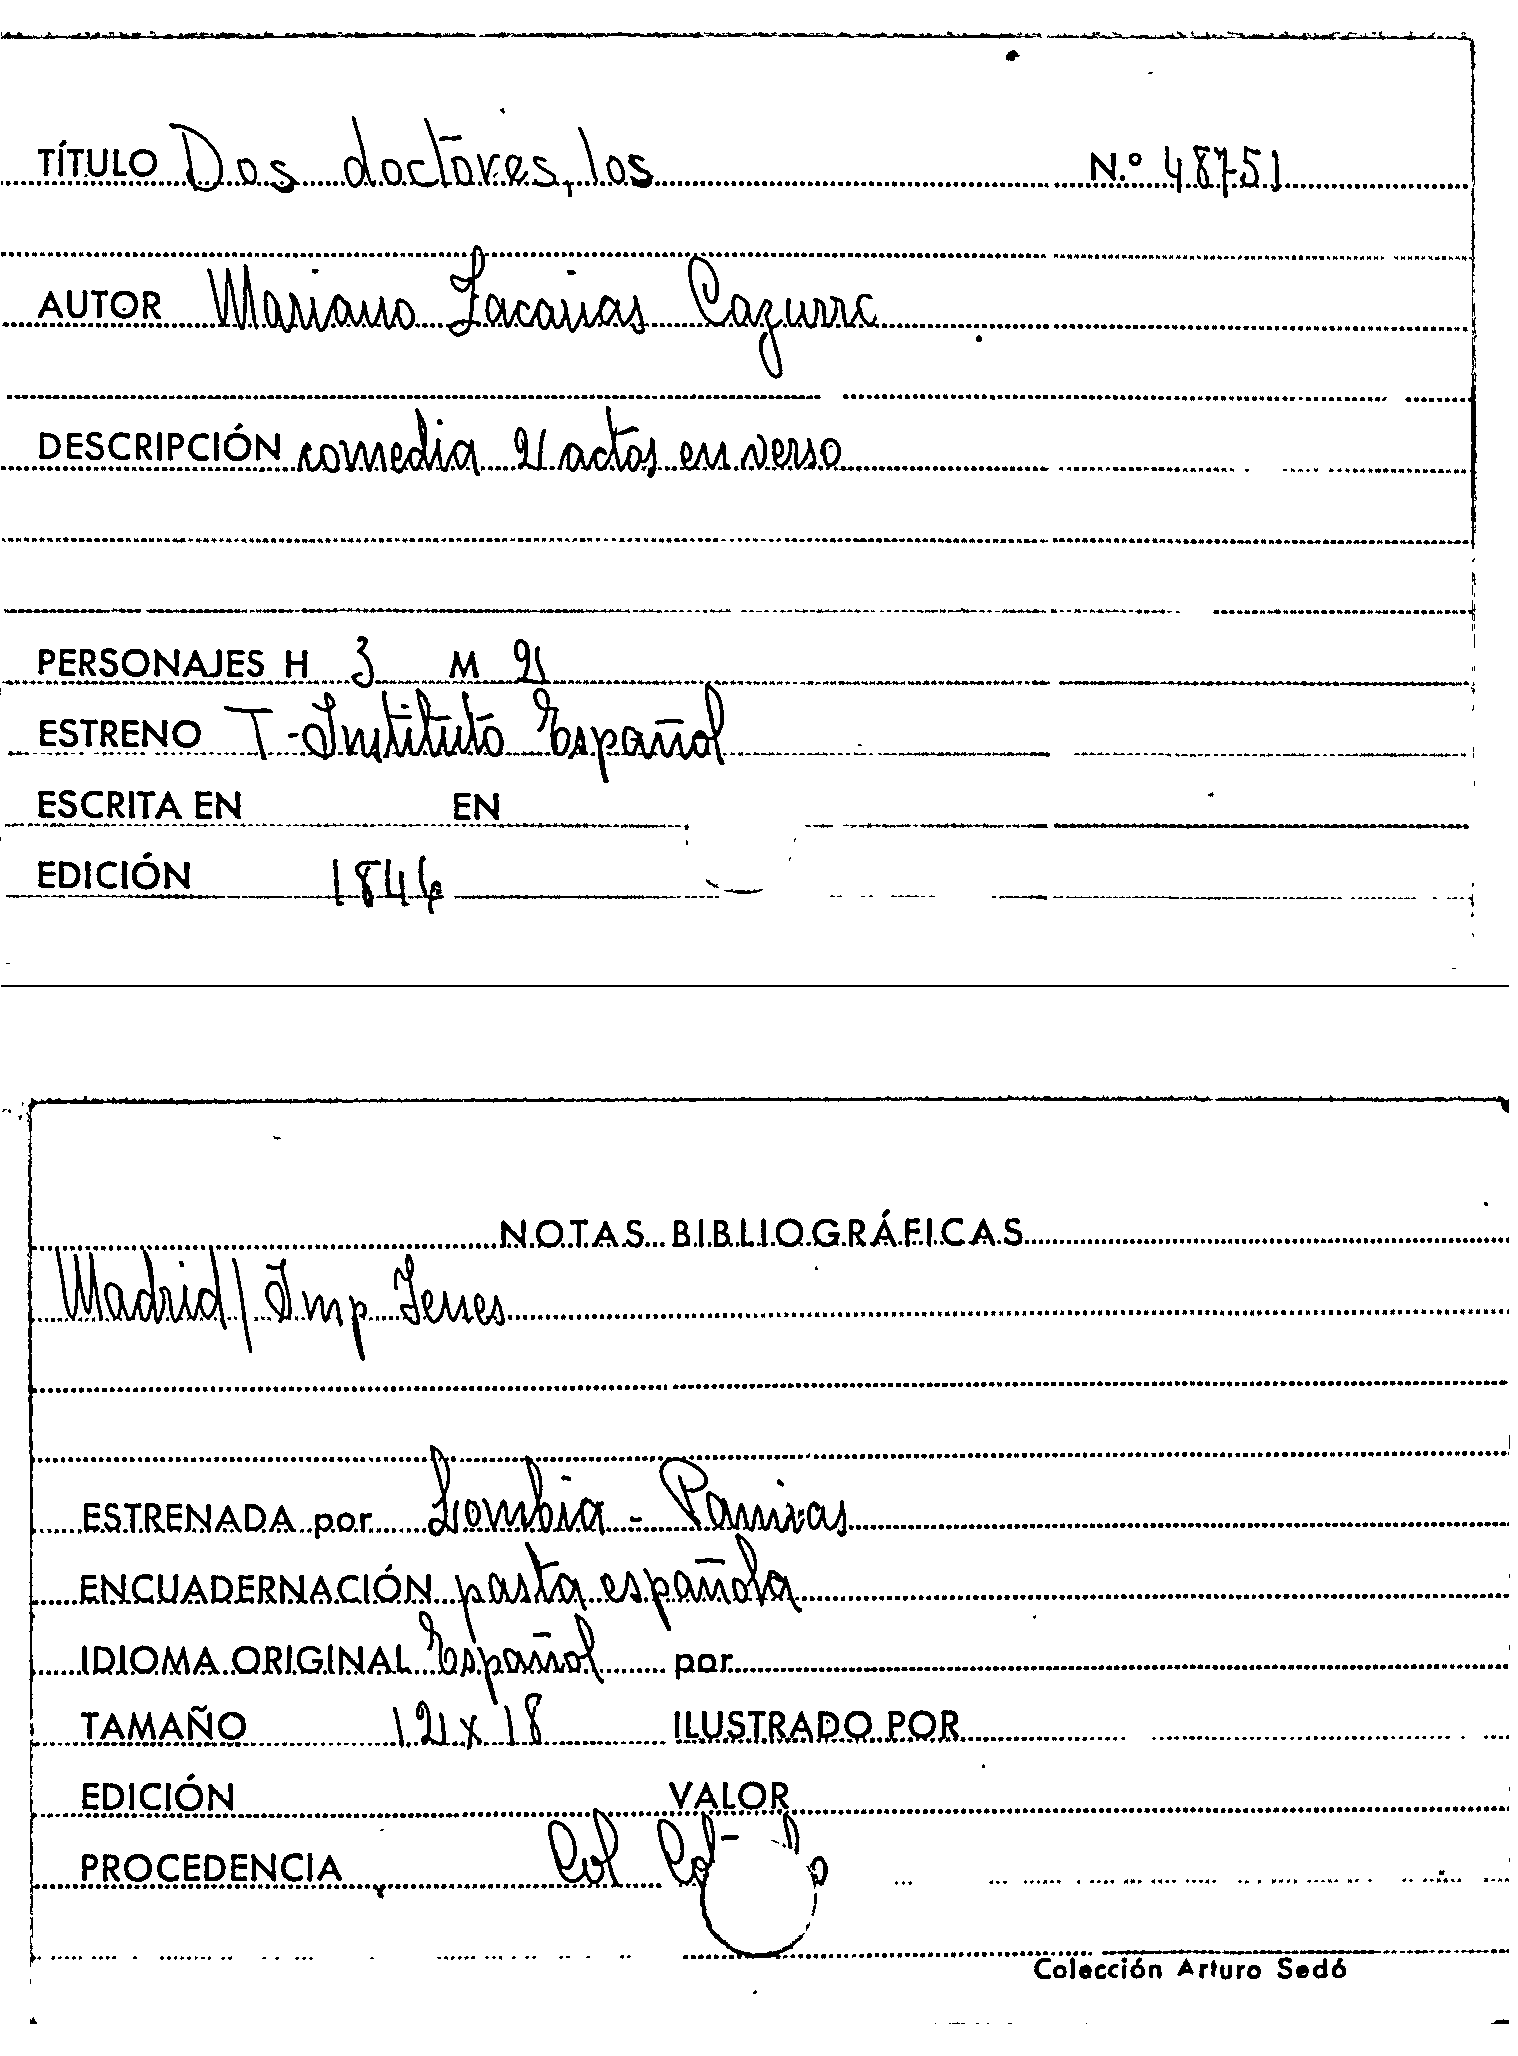 TÍTULO Dos doctores, los N.º 48751
AUTOR Mariano Zacarías Cazurro
DESCRIPCIÓN comedia 2 actos en verso
PERSONAJES H 3 M 2
ESTRENO T-Instituto Español
ESCRITA EN EN
EDICIÓN 1846
NOTAS BIBLIOGRÁFICAS
Madrid / Imp Yenes
ESTRENADA por Lombia - Pamiras
ENCUADERNACIÓN pasta española
IDIOMA ORIGINAL Español por
TAMAÑO 12 x 18 ILUSTRADO POR
EDICIÓN VALOR
PROCEDENCIA Col
Colección Arturo Sedó